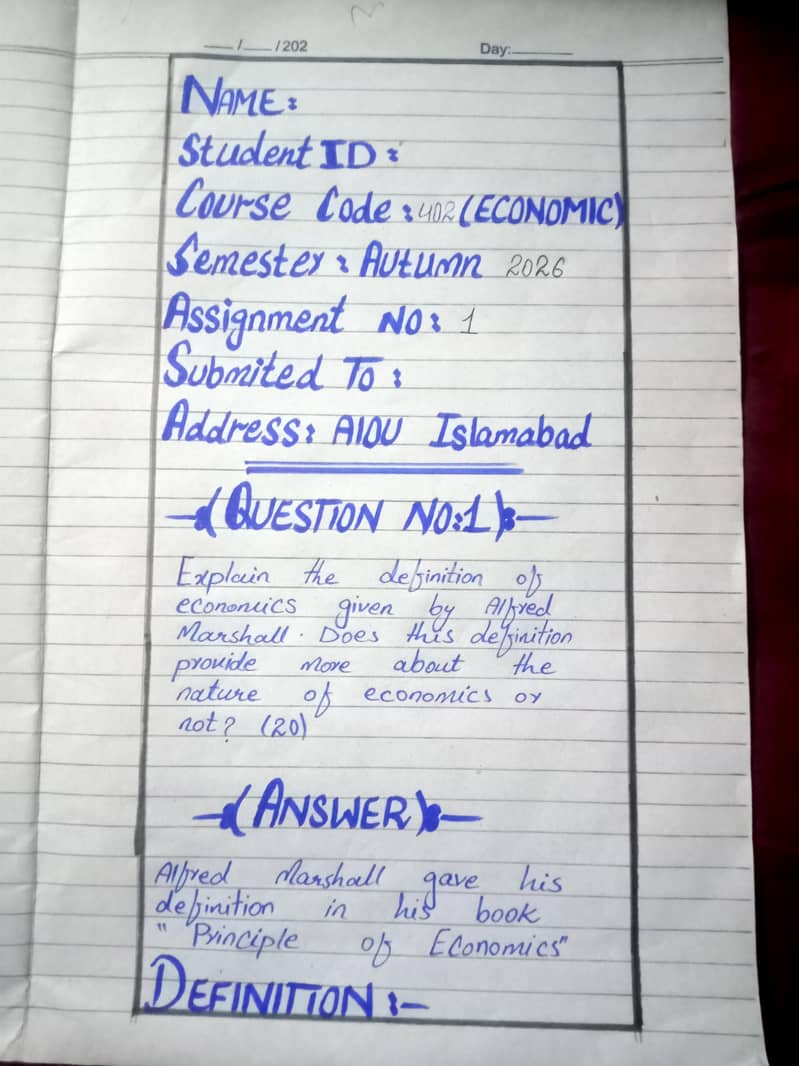 __/__/202 Day:______
NAME:
Student ID:
Course Code: 402 (ECONOMIC)
Semester: Autumn 2026
Assignment NO: 1
Submited To:
Address: AIOU Islamabad
(QUESTION NO:1)
Explain the definition of
economics given by Alfred
Marshall. Does this definition
provide more about the
nature of economics or
not? (20)
(ANSWER)
Alfred Marshall gave his
definition in his book
"Principle of Economics"
DEFINITION:-